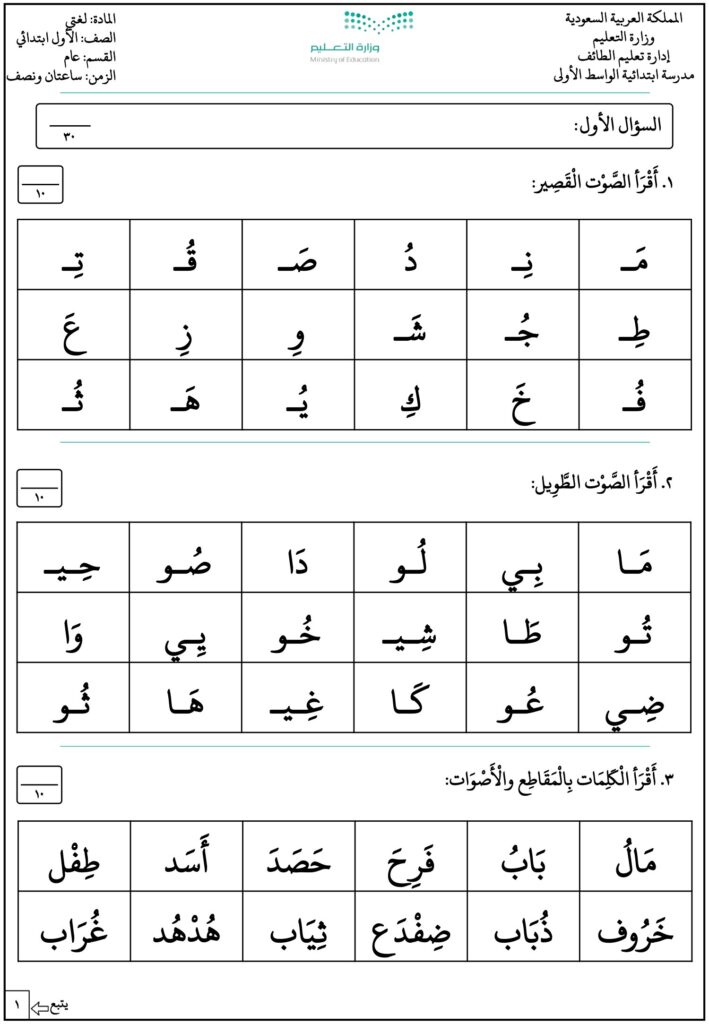 المملكة العربية السعودية
وزارة التعليم
إدارة تعليم الطائف
مدرسة ابتدائية الواسط الأولى
وزارة التعـــليم
Ministry of Education
المادة: لغتي
الصف: الأول ابتدائي
القسم: عام
الزمن: ساعتان ونصف
السؤال الأول:
٣٠
١. أَقْرَأ الصَّوْت الْقَصِير:
١٠
مَــ نِــ دُ صَــ قُــ تِــ
طِــ جُــ شَــ وِ زِ عَ
فُــ خَ كِ يُــ هَــ ثُــ
٢. أَقْرَأ الصَّوْت الطَّوِيل:
١٠
مَــا بِــي لُــو دَا صُــو حِــيــ
تُــو طَــا شِــيــ خُــو يِــي وَا
ضِــي عُــو كَــا غِــيــ هَــا ثُــو
٣. أَقْرَأ الْكَلِمَات بِالْمَقَاطِع والْأَصْوَات:
١٠
مَالُ بَابُ فَرِحَ حَصَدَ أَسَد طِفْل
خَرُوف ذُبَاب ضِفْدَع ثِيَاب هُدْهُد غُرَاب
يتبع
١